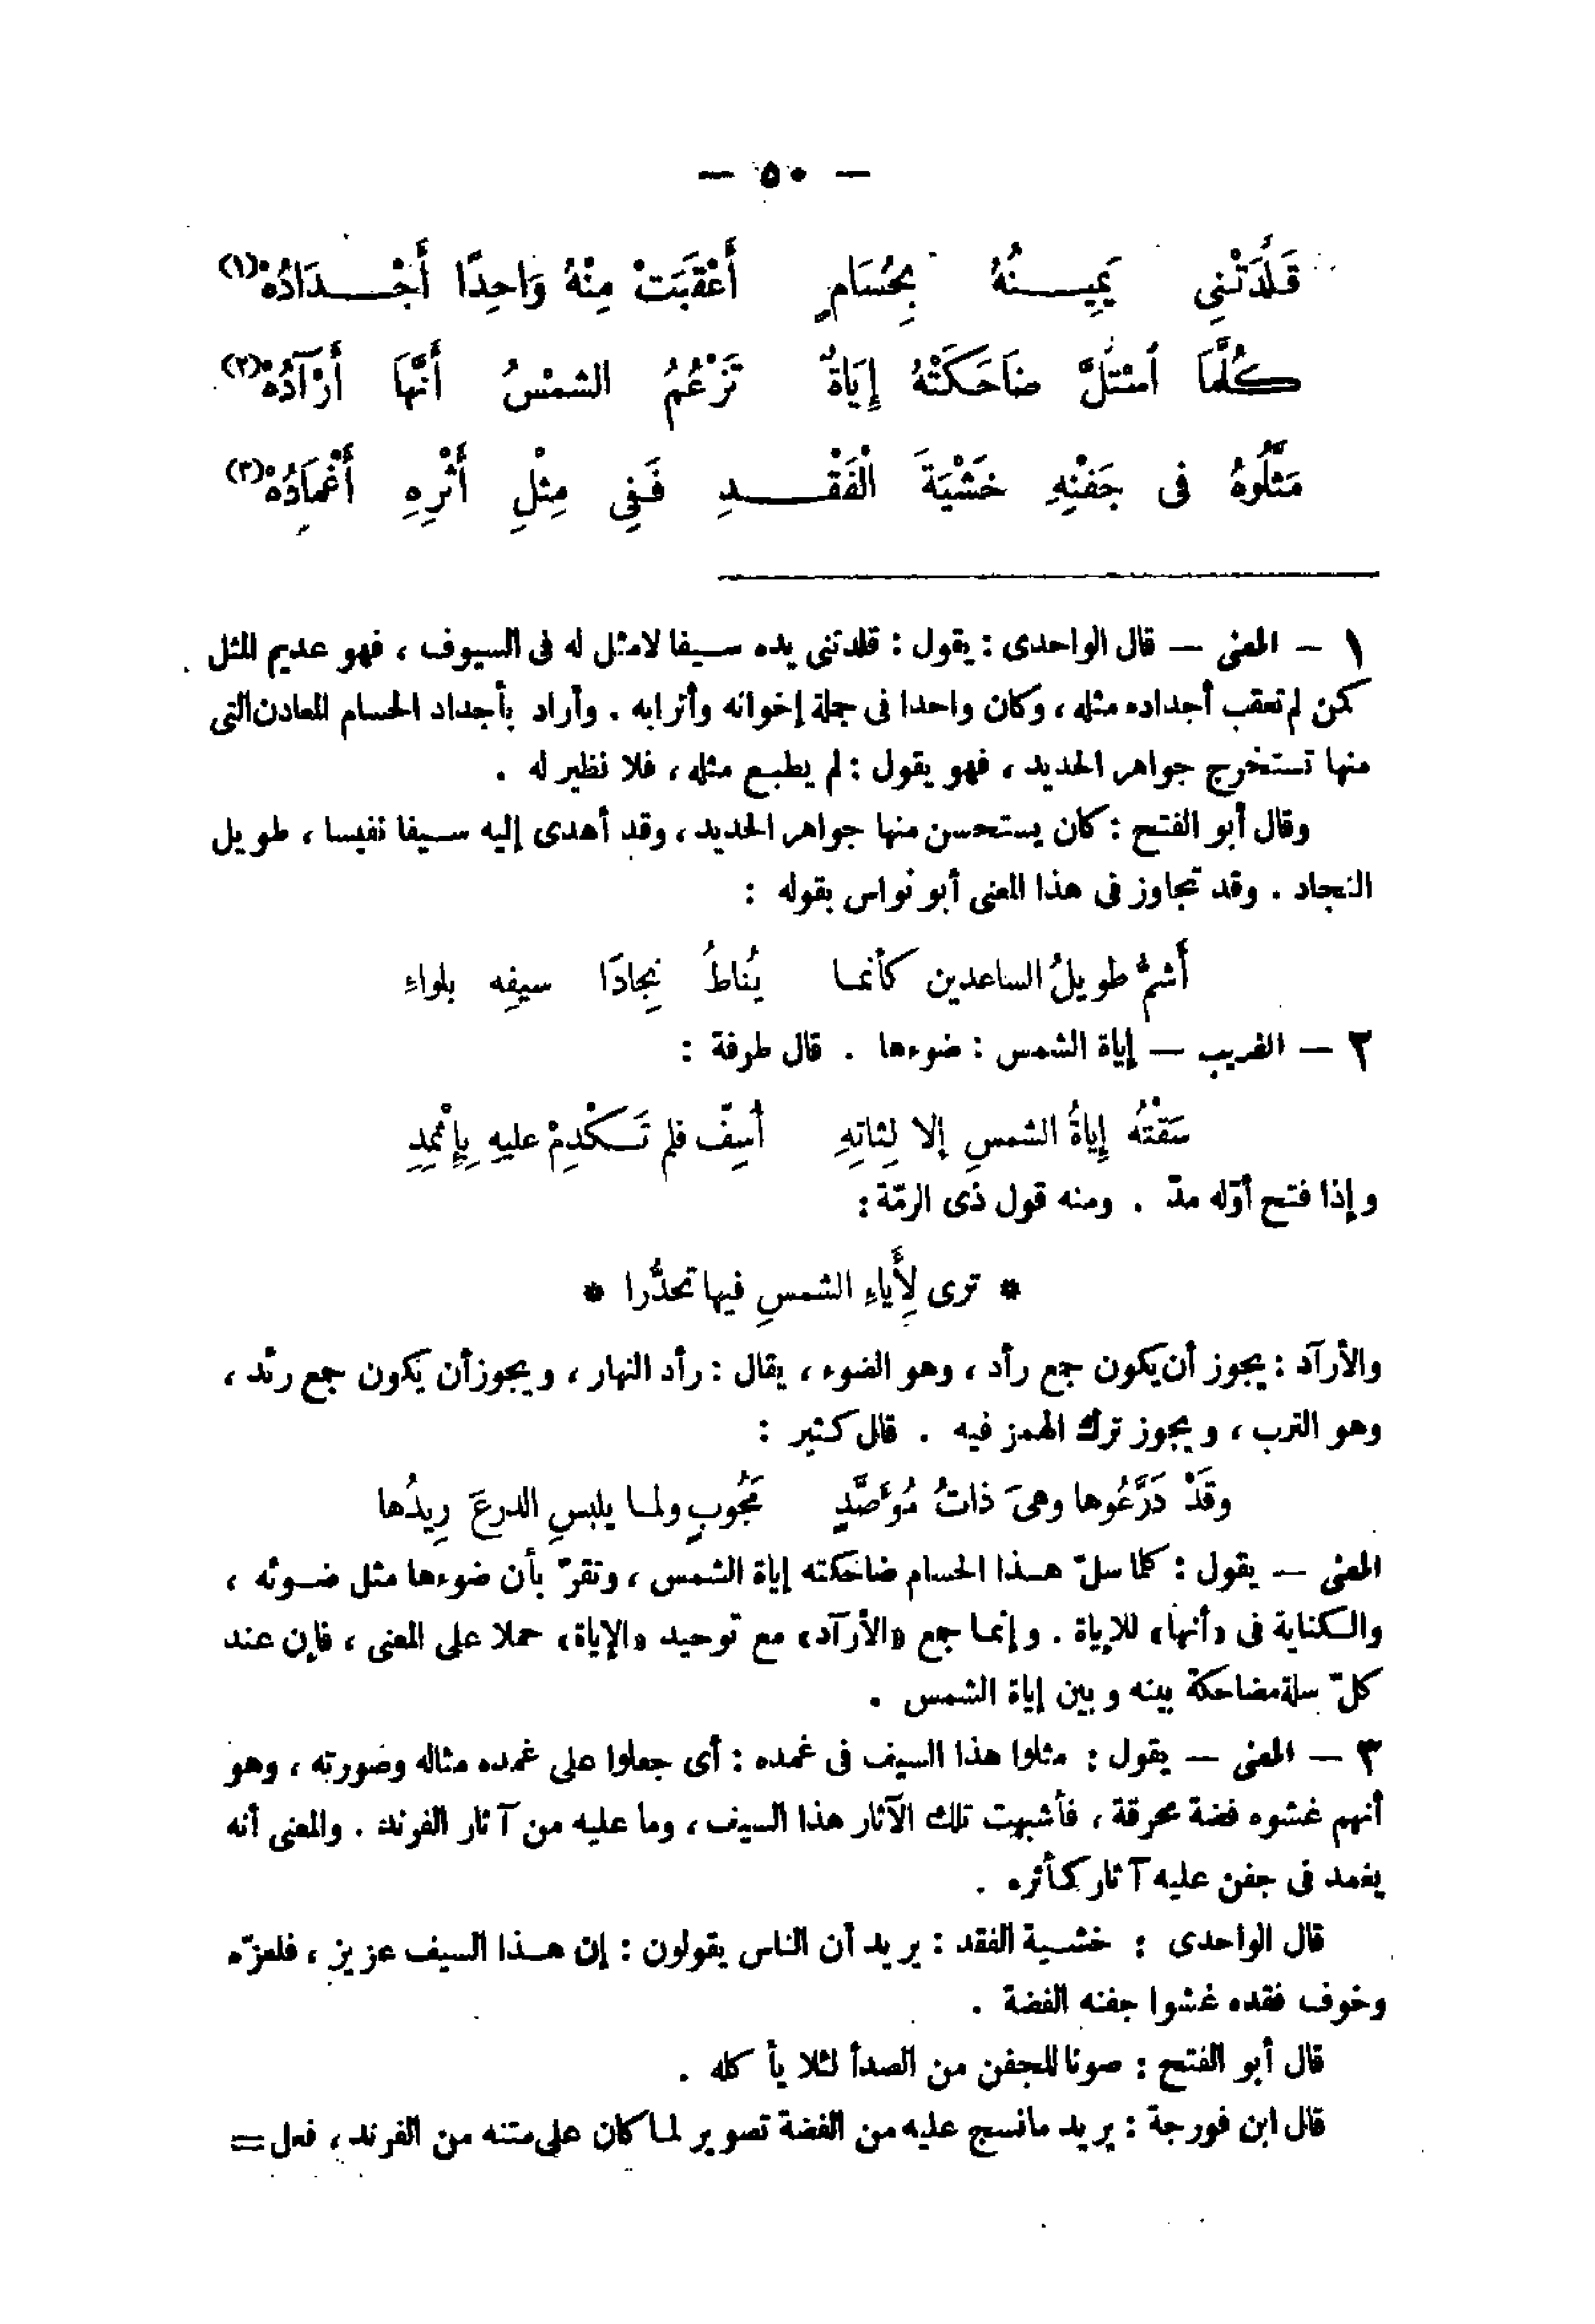 — ٥٠ —
قَلَّدَتْنِى يَمِيـــنُهُ بِحُسَامٍ أَعْقَبَتْ مِنْهُ وَاحِدًا أَجْـــدَادُهْ(١)
كُلَّمَا اُسْتُلَّ ضَاحَكَتْهُ إِيَاةٌ تَزْعُمُ الشمْسُ أَنَّهَا أَرْآدُهْ(٢)
مَثَّلُوهُ فى جَفْنِهِ خَشْيَةَ الْفَقْـــدِ فَفِى مِثْلِ أَثْرِهِ أَغْمَادُهْ(٣)
١ — المعنى — قال الواحدى : يقول : قلدتنى يده سيفا لامثل له فى السيوف ، فهو عديم المثل
كمن لم تعقب أجداده مثله ، وكان واحدا فى جملة إخوانه وأترابه . وأراد بأجداد الحسام المعادن التى
منها تستخرج جواهر الحديد ، فهو يقول : لم يطبع مثله ، فلا نظير له .
وقال أبو الفتح : كان يستحسن منها جواهر الحديد ، وقد أهدى إليه سيفا نفيسا ، طويل
النجاد . وقد تجاوز فى هذا المعنى أبو نواس بقوله :
أَشمُّ طويلُ الساعدين كأنما يُناطُ نِجادَا سيفِه بلواءِ
٢ — الغريب — إياة الشمس : ضوءها . قال طرفة :
سَقَتْهُ إِياةُ الشمسِ إلا لِثاتِهِ أُسِفّ فلم تَكْدِمْ عليهِ بِإِثْمِدِ
وإذا فتح أوّله مدّ . ومنه قول ذى الرمّة :
* ترى لِأَياءِ الشمسِ فيها تحدُّرا *
والأرآد : يجوز أن يكون جمع رأد ، وهو الضوء ، يقال : رأد النهار ، ويجوز أن يكون جمع رئد ،
وهو الترب ، ويجوز ترك الهمز فيه . قال كثير :
وقَدْ دَرَّعُوها وهىَ ذاتُ مُؤَصَّدٍ مَجُوبٍ ولما يلبسِ الدرعَ رِيدُها
المعنى — يقول : كلما سلّ هذا الحسام ضاحكته إياة الشمس ، وتقرّ بأن ضوءها مثل ضوئه ،
والكناية فى «أنها» للاياة . وإنما جمع «الأرآد» مع توحيد «الإياة» حملا على المعنى ، فإن عند
كلّ سلة مضاحكة بينه وبين إياة الشمس .
٣ — المعنى — يقول : مثلوا هذا السيف فى غمده : أى جعلوا على غمده مثاله وصورته ، وهو
أنهم غشوه فضة محرقة ، فأشبهت تلك الآثار هذا السيف ، وما عليه من آثار الفرند . والمعنى أنه
يغمد فى جفن عليه آثار كأثره .
قال الواحدى : خشية الفقد : يريد أن الناس يقولون : إن هذا السيف عزيز ، فلعزّه
وخوف فقده غشوا جفنه الفضة .
قال أبو الفتح : صونا للجفن من الصدأ لئلا يأكله .
قال ابن فورجة : يريد مانسج عليه من الفضة تصوير لما كان على متنه من الفرند ، فعل =